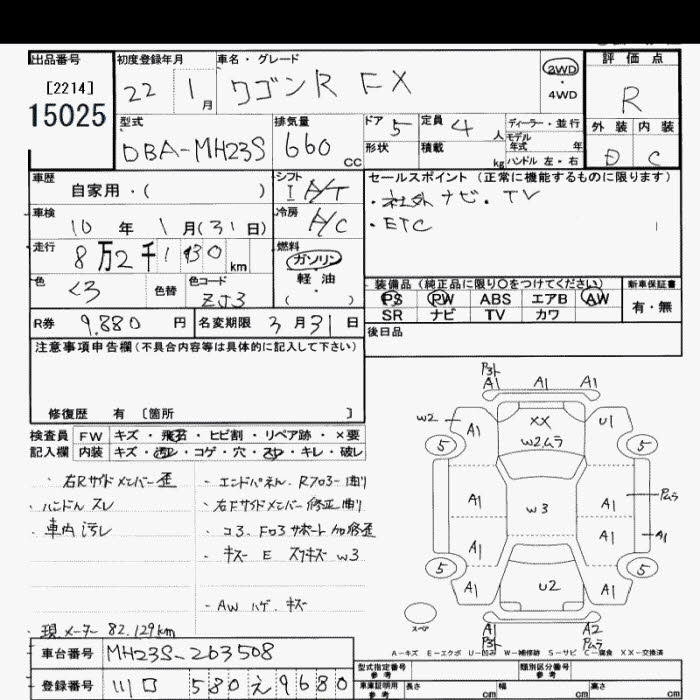 出品番号 初度登録年月 車名・グレード 評価点
[2214] 22 1月 ワゴンR FX 2WD・4WD R
15025
型式 排気量 ドア 5 定員 4人 ディーラー・並行 外装 内装
DBA-MH23S 660cc 形状 積載 kg モデル年式 年 ハンドル 左・右 D C
車歴 シフト セールスポイント (正常に機能するものに限ります)
自家用・( ) I A/T ・社外ナビ・TV
車検 冷房 ・ETC
10年 1月(31日) A/C
走行 燃料
8万2千130km ガソリン
軽油
( )
色 色替 色コード 装備品(純正品に限り○をつけてください) 新車保証書
クロ ZJ3 PS PW ABS エアB AW 有・無
SR ナビ TV カワ
R券 9.880円 名変期限 3月31日 後日品
注意事項申告欄(不具合内容等は具体的に記入して下さい)
修復歴 有 〔箇所 〕
検査員 FW キズ・飛石・ヒビ割・リペア跡・×要
記入欄 内装 キズ・汚レ・コゲ・穴・スレ・キレ・破レ
・右Rサイドメンバー歪 ・エンドパネル、Rフロアー曲り
・ハンドルスレ ・右Fサイドメンバー修正曲り
・車内汚レ ・コ3、Fロ3サポート加修歪
・キズ E スリキズ W3
・AW ハゲ、キズ
・現メーター 82.129km
P3ト
A1 A1 A1
W2 A1 XX U1
W2ムラ
5 5
A1 W3 A1 Pムラ
A1 A1 A1
5 5
A1 U2 A1
スペア
A1 A2
P3ト Pムラ
A－キズ E－エクボ U－凹み W－補修跡 S－サビ C－腐食 XX－交換済
車台番号 MH23S-263508
登録番号 川口 580 え 9680
型式指定番号 参考 類別区分番号 参考
車庫証明用 参考 長さ cm 幅 cm 高さ cm